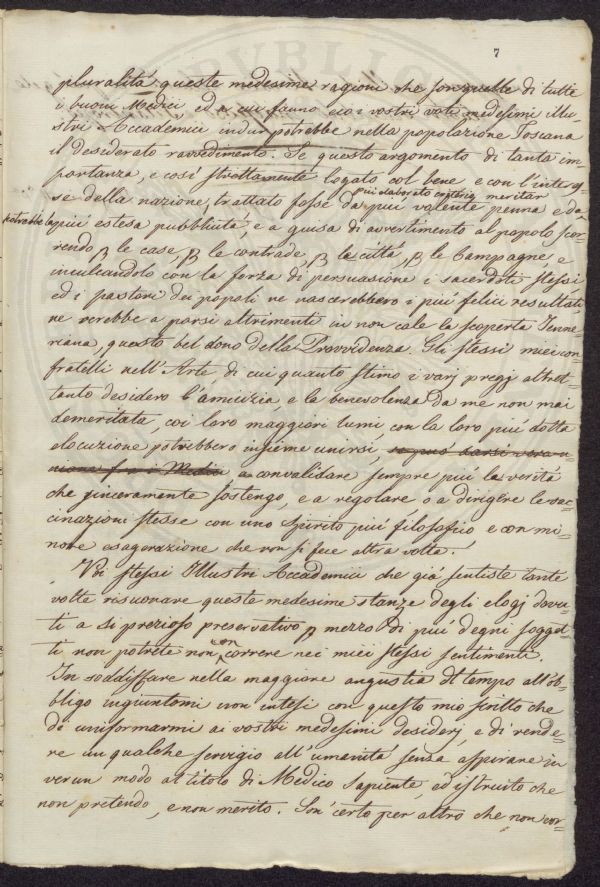 7
pluralità queste medesime ragioni che son quelle di tutte
i buoni Medici ed a cui fanno eco i vostri voti medesimi illu=
stri Accademici indur potrebbe nella popolazione Toscana
il desiderato ravvedimento. Se questo argomento di tanta im=
portanza, e così strettamente legato col bene e con l'interes=
se della nazione, trattato fosse da più valente penna e da
più elaborato criterio meritar
potrebbe la più estesa pubblicità, e a guisa di avvertimento al popolo scor=
rendo p le case, p le contrade, p la città, p le Campagne e
inculcandolo con la forza di persuasione i sacerdoti stessi
ed i pastori dei popoli ne nascerebbero i più felici resultati,
ne verebbe a porsi altrimenti in non cale la scoperta Jenne=
riana, questo bel dono della Provvidenza. Gli stessi miei con=
fratelli nell'Arte, di cui quanto stimo i varj pregj altret=
tanto desidero l'amicizia, e la benevolenza da me non mai
demeritata, coi loro maggiori lumi, con la loro più dotta
elocuzione potrebbero insieme unirsi, se può darsi vera u=
nione fra i Medici a convalidare sempre più la verità
che sinceramente sostengo, e a regolare o a dirigere le vac=
cinazioni stesse con uno spirito più filosofico e con mi=
nore esagerazione che non si fece altra volta.
Voi stessi Illustri Accademici che già sentiste tante
volte risuonare queste medesime stanze degli elogj dovu=
ti a si prezioso preservativo p mezzo di più degni sogget=
ti non potrete non con correre nei miei stessi sentimenti.
In soddisfare nella maggiore angustia di tempo all'ob=
bligo ingiuntomi non intesi con questo mio scritto che
di uniformarmi ai vostri medesimi desiderj, e di rende=
re un qualche servigio all'umanità senza aspirare in
verun modo al titolo di Medico sapiente, ed istruito che
non pretendo, e non merito. Son certo per altro che non vor=